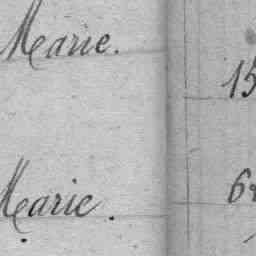 Marie.
15
Marie.